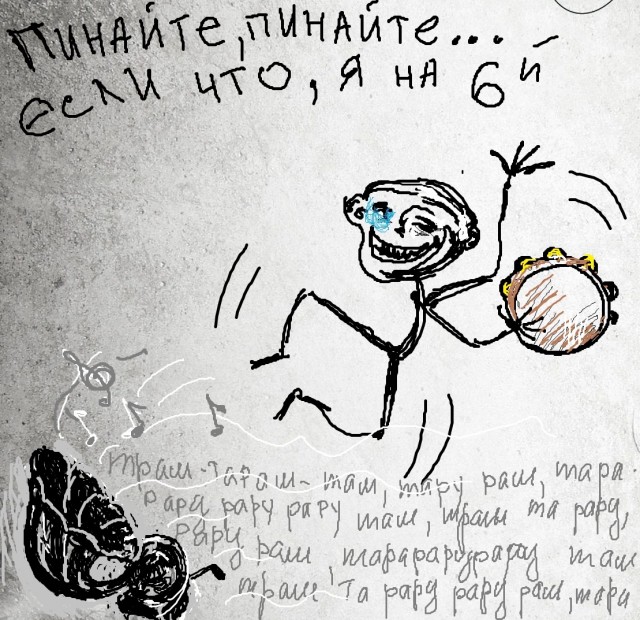 ПИНАЙТЕ, ПИНАЙТЕ...
ЕСЛИ ЧТО, Я НА 6й
трам-тарам-там, тару рам, тара
рара рару рару там, трам та рару,
рару рам, тарарарурару там
трам та рару рару рам, тара